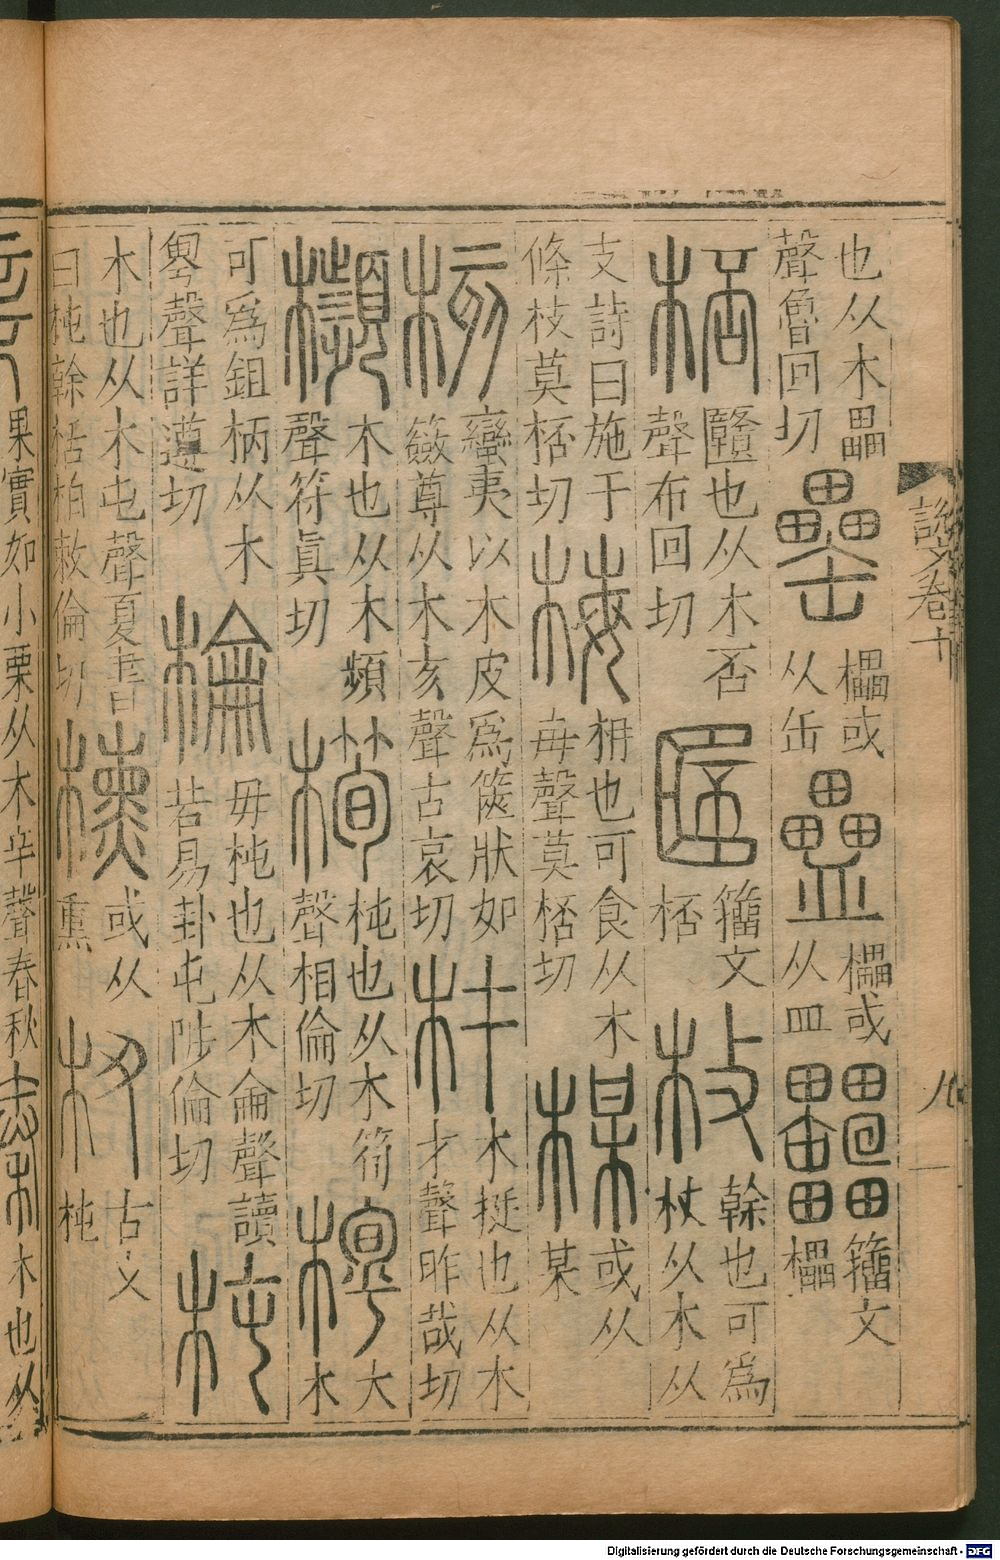 也从木畾
聲魯回切
罍
櫑或
从缶
櫑或
从皿
籀文
櫑
說文卷十
八
桮
也从木否
聲布回切
籀文
桮
枚
榦也可為
杖从木从
支詩曰施于
條枝莫桮切
梅
枏也可食从木
每聲莫桮切
楳
或从
某
核
蠻夷以木皮為篋狀如
籢尊从木亥聲古哀切
材
木挺也从木
才聲昨哉切
木也从木頻
聲符真切
橁
杶也从木筍
聲相倫切
大
木
可為鉏柄从木
聲詳遵切
棆
毋杶也从木侖聲讀
若易卦屯陟倫切
杶
木也从木屯聲夏書
曰杶榦栝柏敕倫切
櫄
或从
熏
杻
古文
杶
果實如小栗从木辛聲春秋
木也从
Digitalisierung gefördert durch die Deutsche Forschungsgemeinschaft - DFG